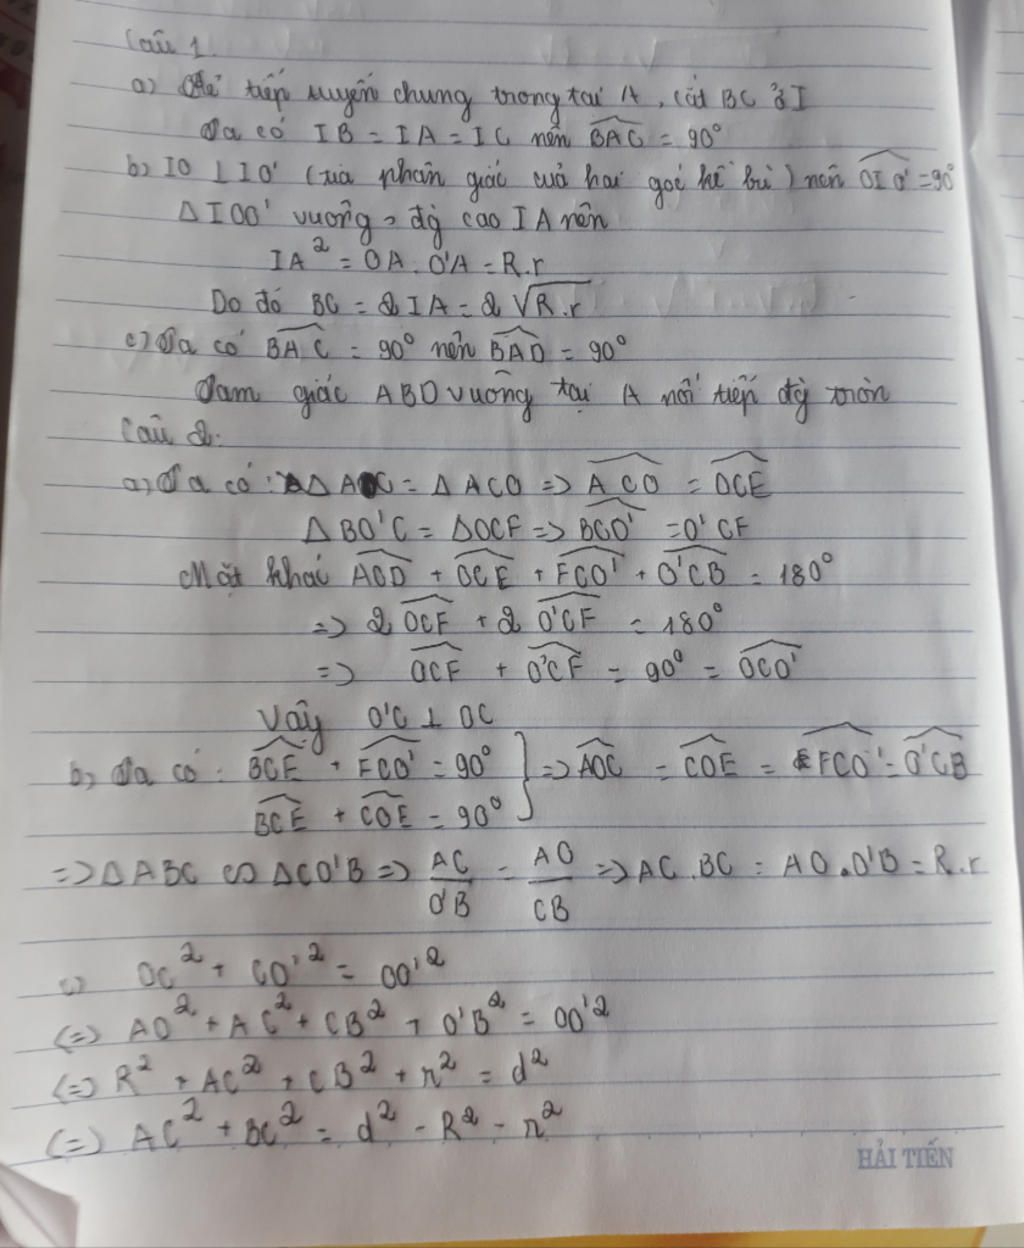 Câu 1
a) Kẻ tiếp tuyến chung trong tại A, cắt BC ở I
Ta có IB = IA = IC nên \widehat{BAC} = 90°
b) IO ⊥ IO' (tia phân giác của hai góc kề bù) nên \widehat{OIO'} = 90°
ΔIOO' vuông, đg cao IA nên
IA² = OA . O'A = R.r
Do đó BC = 2IA = 2√{R.r}
c) Ta có \widehat{BAC} = 90° nên \widehat{BAD} = 90°
Tam giác ABD vuông tại A nối tiếp đg tròn
Câu 2:
a, Ta có : ΔAOC = ΔACO => \widehat{ACO} = \widehat{OCE}
ΔBO'C = ΔOCF => \widehat{BCO'} = O'CF
Mặt khác \widehat{ACO} + \widehat{OCE} + \widehat{FCO'} + \widehat{O'CB} = 180°
=> 2\widehat{OCF} + 2\widehat{O'CF} = 180°
=> \widehat{OCF} + \widehat{O'CF} = 90° = \widehat{OCO'}
Vậy O'C ⊥ OC
b, Ta có : \widehat{BCE} + \widehat{FCO'} = 90° } => \widehat{AOC} = \widehat{COE} = \widehat{FCO'} = \widehat{O'CB}
\widehat{BCE} + \widehat{COE} = 90°
=> ΔABC ∽ ΔCO'B => AC/O'B = AO/CB => AC.BC = AO.O'B = R.r
c) OC² + CO'² = OO'²
(=) AO² + AC² + CB² + O'B² = OO'²
(=) R² + AC² + CB² + r² = d²
(=) AC² + BC² = d² - R² - r²
HẢI TIẾN